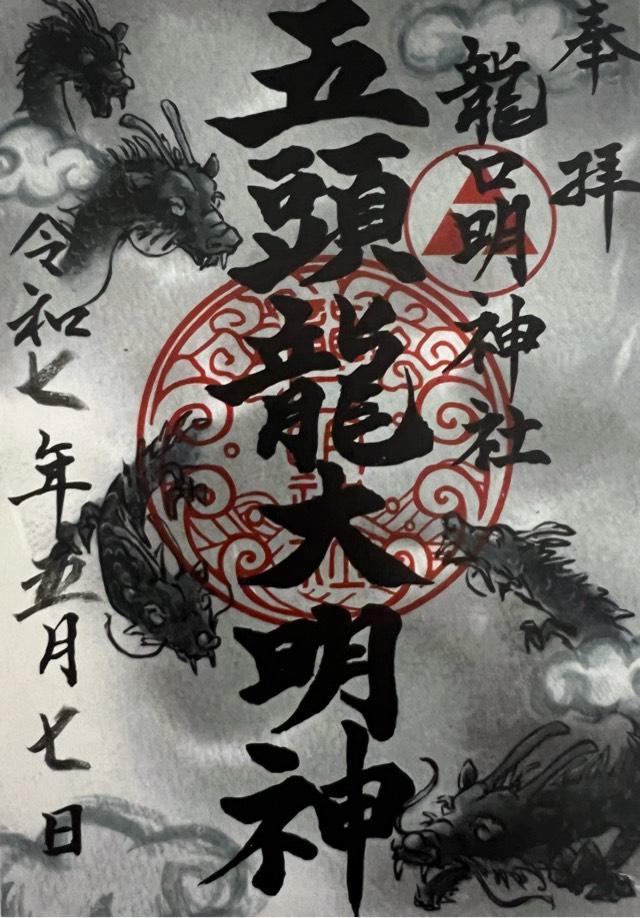 奉拝
龍口明神社
五頭龍大明神
令和七年五月七日